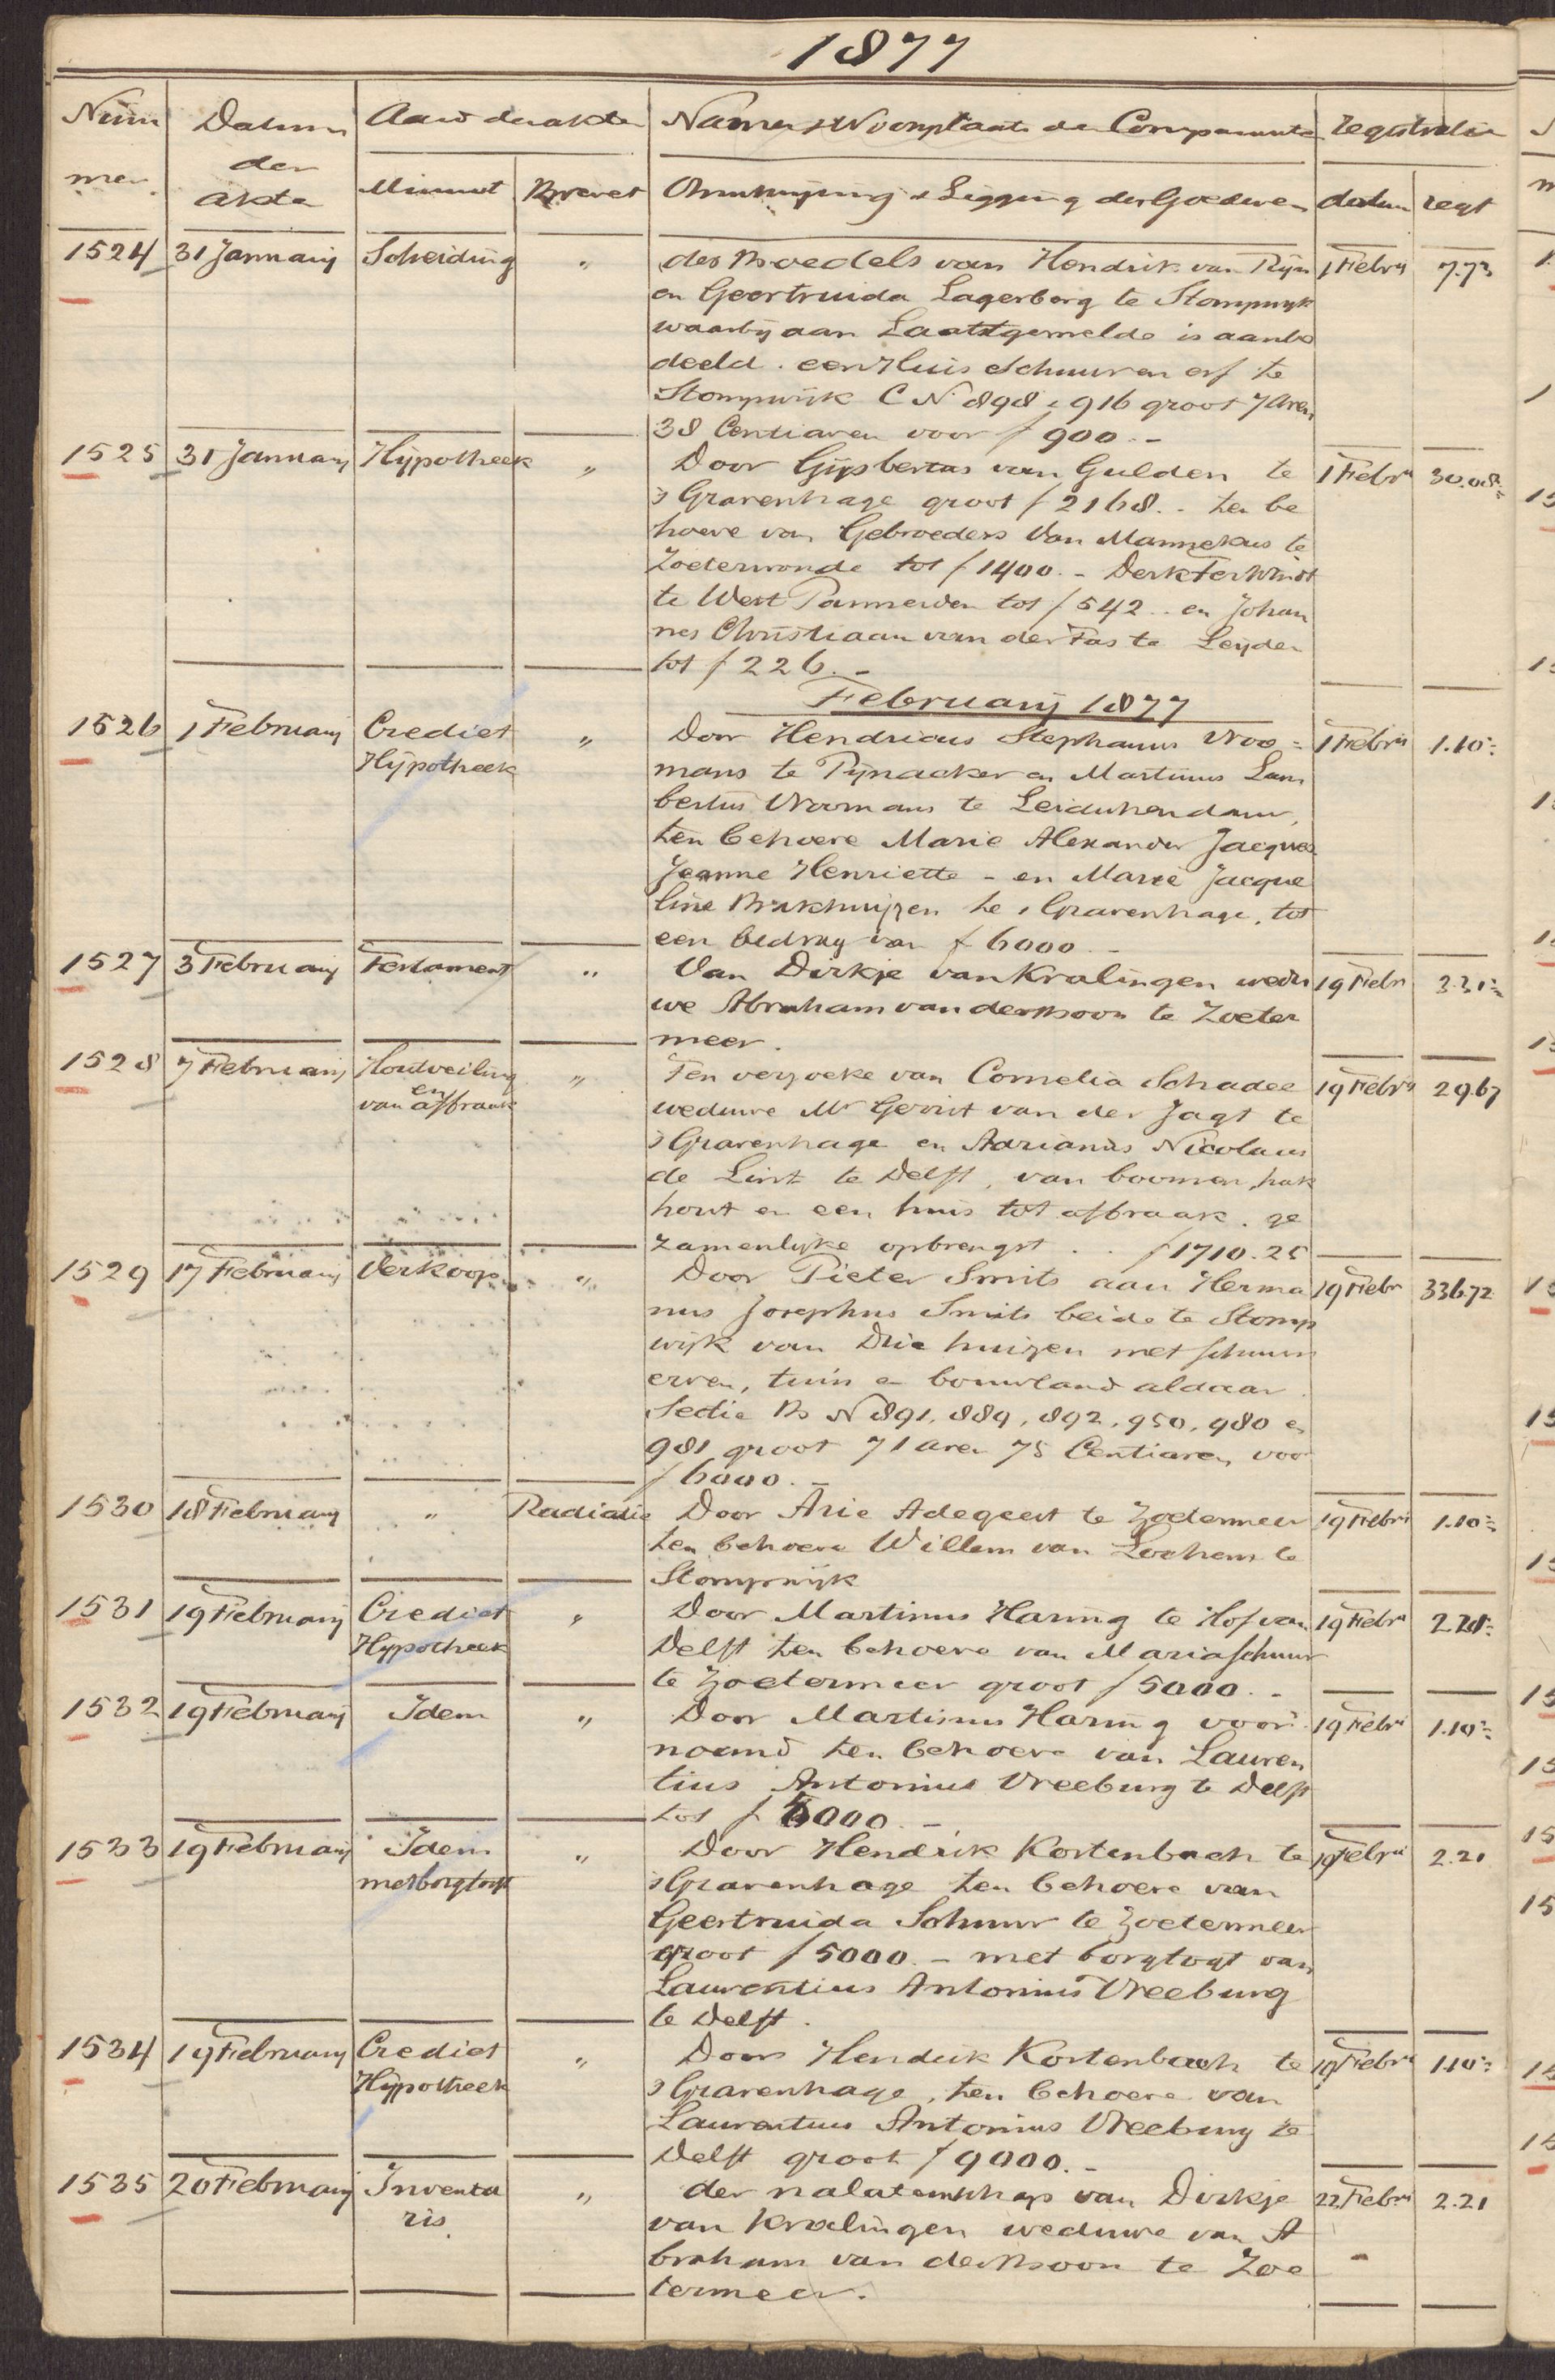 1877
Num
mer
Datum
der
akte
Aard der akte
Minuut Brevet
Namen & Woonplaats der Comparanten
Omschrijving & Ligging der Goederen
registratie
datum regt
1524 31 Januarij Scheiding " des Boedels van Hendrik van Rijn 1 Febrij 7.73
en Geertruida Lagerberg te Stompwijk
waarbij aan Laatstgemelde is aanbe
deeld. een Huis Schuur en erf te
Stompwijk C No 898 & 916 groot 7 Aren
38 Centiaren voor f 900.-
1525 31 Januarij Hijpotheek " Door Gijsbertus van Gulden te 1 Febrij 30.08
's Gravenhage groot f 2168.- ten be
hoeve van Gebroeders Van Mannekus te
Zoeterwoude tot f 1400.- Derk Terwindt
te West Pannerden tot f 542.- en Johan
nes Christiaan van der Tas te Leijden
tot f 226.-
Februarij 1877
1526 1 Februarij Crediet " Door Hendricus Stephanus Vroo= 1 Febrij 1.10
Hijpotheek mans te Pijnacker en Martinus Lam
bertus Vroomans te Leidschendam,
ten behoeve Marie Alexander Jacques
Jeanne Henriette - en Marie Jacque
line Bakhuijzen te 's Gravenhage, tot
een bedrag van f 6000.-
1527 3 Februarij Testament " Van Dirkje van Kralingen wedu 19 Febr 3.31
we Abraham van der Boon te Zoeter
meer.
1528 7 Februarij Houtveiling " Ten verzoeke van Cornelia Schadee 19 Febrij 29.67
en
van afbraak weduwe Mr Gerrit van der Jagt te
's Gravenhage en Adrianus Nicolaus
de Lint te Delft, van boomen, hak
hout en een huis tot afbraak. ge
zamenlijke opbrengst .. f 1710.25
1529 17 Februarij Verkoop " Door Pieter Smits aan Herma 19 Febr 336.72
nus Josephus Smits beide te Stomp
wijk van Drie huizen met schuur
erven, tuin en bouwland aldaar.
Sectie B No 891, 889, 892, 950, 980 en
981 groot 71 aren 75 Centiaren, voor
f 6000.-
1530 18 Februarij " Radiatie Door Arie Adegeest te Zoetermeer 19 Febri 1.10
ten behoeve Willem van Lochem te
Stompwijk
1531 19 Februarij Crediet " Door Martinus Haring te Hof van 19 Febrij 2.20
Hypotheek Delft ten behoeve van Maria Schuur
te Zoetermeer groot f 5000.-
1532 19 Februarij Idem " Door Martinus Haring voor= 19 Febri 1.10
noemd ten behoeve van Lauren
tius Antonius Vreeburg te Delft
tot f 5000.-
1533 19 Februarij Idem " Door Hendrik Kortenbach te 19 Febrij 2.21
met borgtogt 's Gravenhage ten behoeve van
Geertruida Schuur te Zoetermeer
groot f 5000.- met borgtogt van
Laurentius Antonius Vreeburg
te Delft.
1534 19 Februarij Crediet " Door Hendrik Kortenbach te 19 Febrij 1.10
Hijpotheek 's Gravenhage, ten behoeve van
Laurentius Antonius Vreeburg te
Delft groot f 9000.-
1535 20 Februarij Inventa " der nalatenschap van Dirkje 22 Febrij 2.21
ris van Kralingen weduwe van A
braham van der Boon te Zoe
termeer.